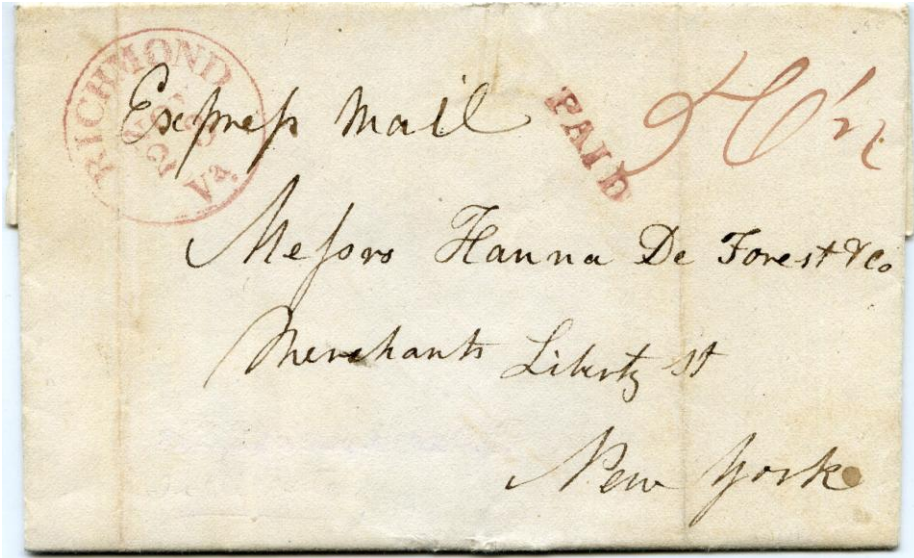 RICHMOND
Va.
Express Mail
PAID
Messrs Hanna De Forest & Co
Merchants Liberty St
New York